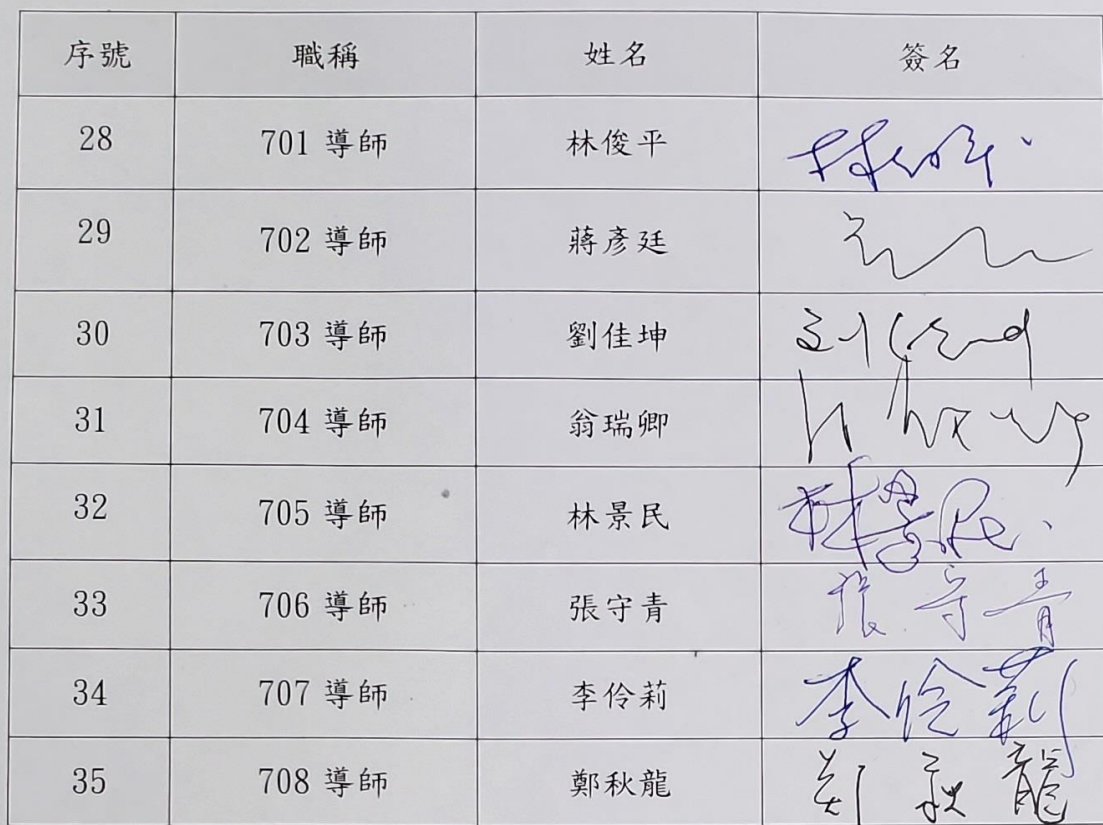 序號 職稱 姓名 簽名
28 701 導師 林俊平 林俊平
29 702 導師 蔣彥廷
30 703 導師 劉佳坤 刘佳坤
31 704 導師 翁瑞卿
32 705 導師 林景民 林景民
33 706 導師 張守青 張守青
34 707 導師 李伶莉 李伶莉
35 708 導師 鄭秋龍 郑秋龍